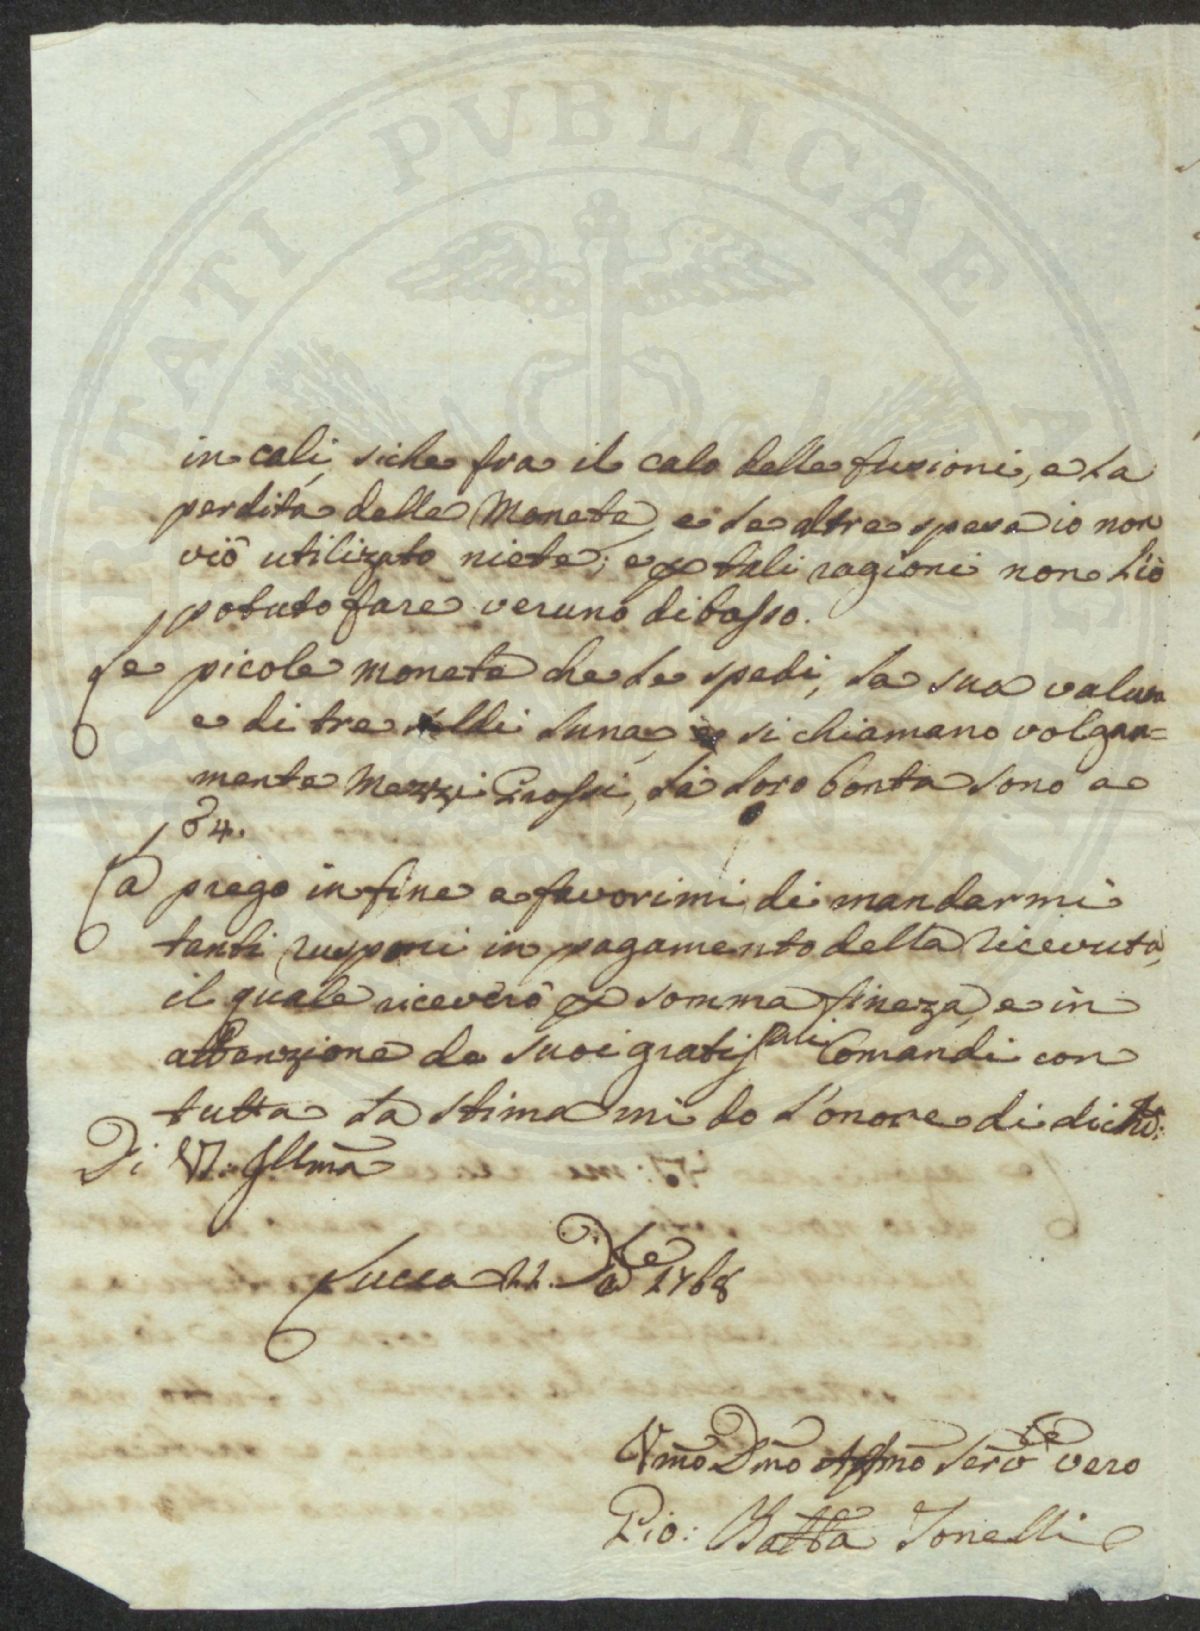 PVBLICAE
in cali, siche fra il calo delle fusioni, e la
perdita delle Monete, e le altre spese io non
viò utilizato niete; e p tali ragioni non l'iò
potuto fare veruno dibasso.
Le picole monete che le spedi, la sua valuta
e di tre soldi l'una, e si chiamano volgar=
mente Mezzi Grossi, la loro bonta sono a
84.
La prego in fine a favorimi di mandarmi
tanti rusponi in pagamento della ricevuta,
il quale riceverò p somma fineza, e in
attenzione de suoi gratis comandi con
tutta la stima mi do l'onore di dichi:
Di V: Illma
Lucca 22. 1768
Vmo Dmo Serv vero
Gio: Batta Tonelli